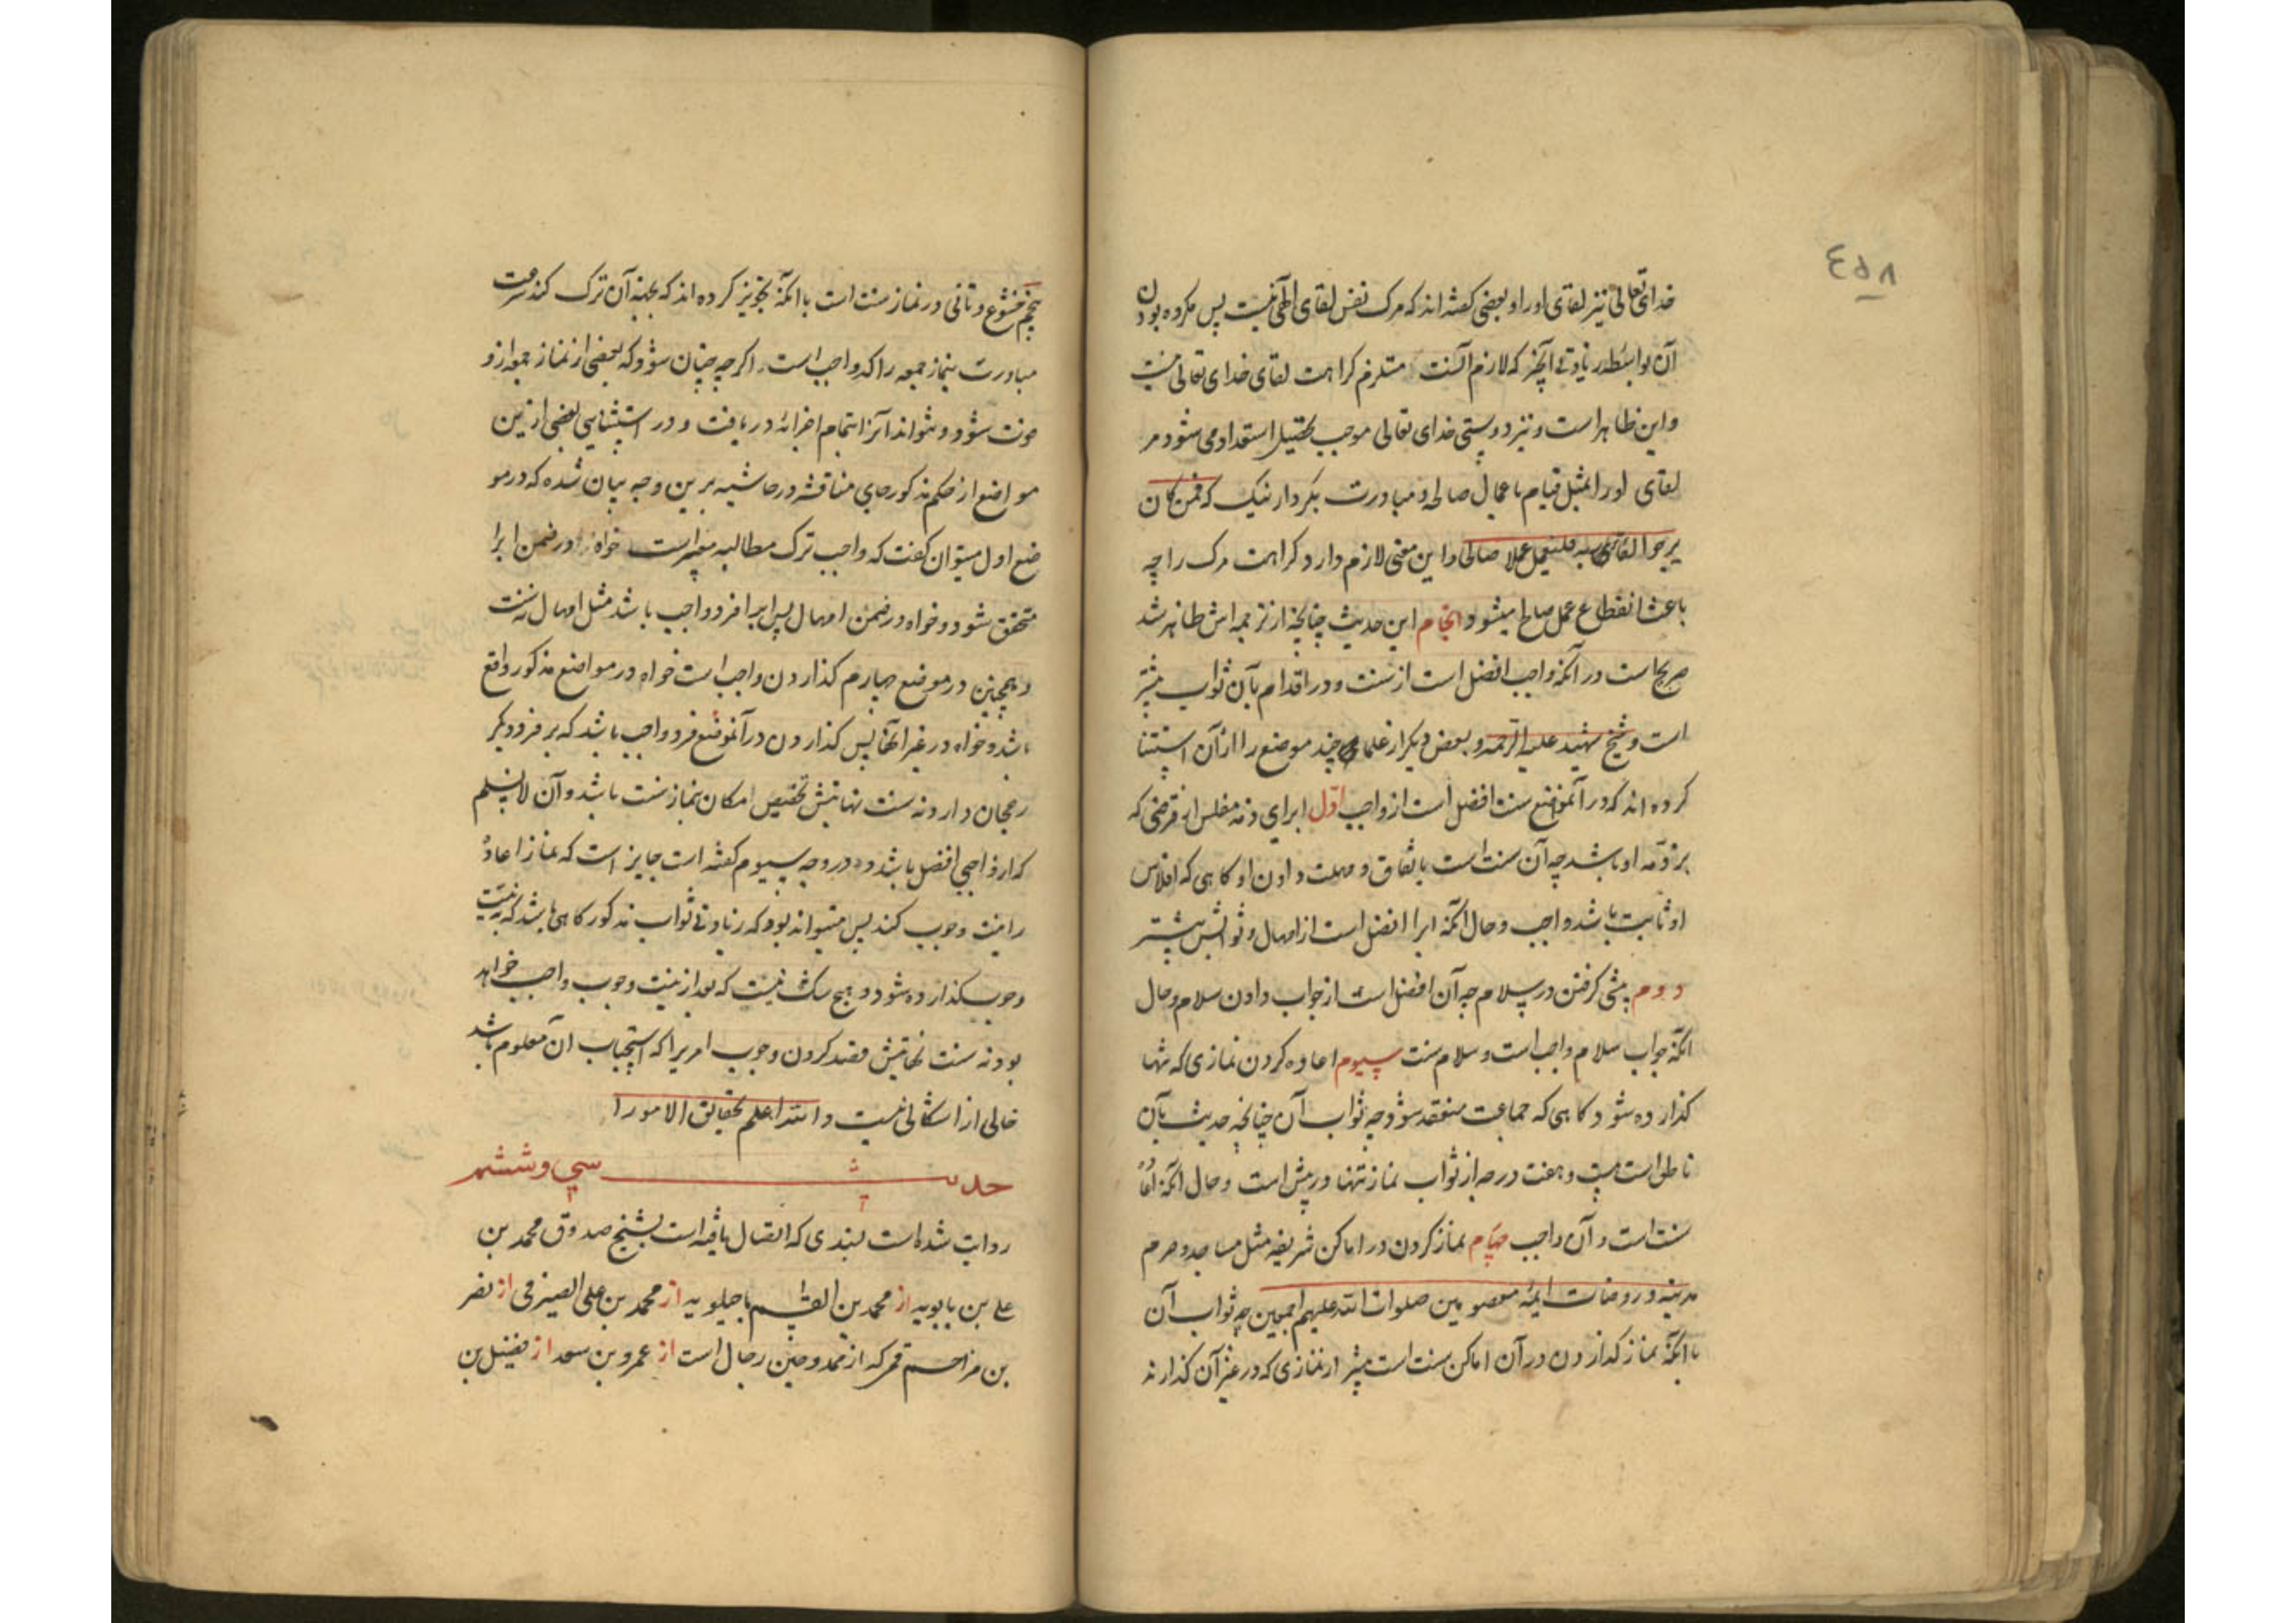 ٤٥٨
خدای تعالی نیز لقای او را و بعضی کفته اند که مرک نفس لقای الهی نیست پس مکروه بودن
آن بواسطه زیادتی که لازم آنست مستلزم کراهت لقای خدای تعالی نیست
و این ظاهر است و نیز دوستی خدای تعالی موجب تحصیل استعداد می شود مر
لقای او را بمثل قیام باعمال صالحه و مبادرت بکردار نیک که فمن کان
یرجوا لقاء ربه فلیعمل عملا صالحا و این معنی لازم دارد کراهت مرک را چه
باعث انقطاع عمل صالح میشود و انجام این حدیث چنانچه از ترجمه اش ظاهر شد
صریح است در آنکه واجب افضل است از سنت و در اقدام بآن ثواب بیشتر
است و شیخ شهید علیه الرحمه و بعض دیکر از علما چند موضع را از آن استثنا
کرده اند که در آنموضع سنت افضل است از واجب اول ابرای ذمه مفلس از قرضی که
بر ذمه او باشد چه آن سنت است باتفاق و مهلت دادن او کاهی که افلاس
او ثابت باشد واجب و حال آنکه ابرا افضل است از امهال و ثوابش بیشتر
دوم پیشی کرفتن در سلام چه آن افضل است از جواب دادن سلام و حال
آنکه جواب سلام واجب است و سلام سنت سیوم اعاده کردن نمازی که تنها
کذارده شود کاهی که جماعت منعقد شود چه ثواب آن چنانچه حدیث بآن
ناطق است بیست و هفت درجه از ثواب نماز تنها در پیش است و حال آنکه اعاده
سنت است و آن واجب چهارم نماز کردن در اماکن شریفه مثل مساجد و حرم
مدینه و روضات ائمه معصومین صلوات الله علیهم اجمعین چه ثواب آن
با آنکه نماز کذاردن در آن اماکن سنت است بیشتر از نمازی که در غیر آن کذارند
پنجم خشوع و تانی در نماز سنت است با آنکه تجویز کرده اند که بجهة آن ترک کند سرعت
مبادرت بنماز جمعه را که واجب است اکرچه چنان شود که بعضی از نماز جمعه از و
فوت شود و نتواند آنرا بتمام اجزائه دریافت و در استثنایی بعضی ازین
مواضع از حکم مذکور جای مناقشه در حاشیه برین وجه بیان شده که در مو
ضع اول میتوان کفت که واجب ترک مطالبه معسر است خواه در ضمن ابرا
متحقق شود و خواه در ضمن امهال پس ابرا فرد واجب باشد مثل امهال نه سنت
و همچنین در موضع چهارم کذاردن واجب است خواه در مواضع مذکور واقع
باشد و خواه در غیر آنها پس کذاردن در آنموضع فرد واجب باشد که بر فرد دیکر
رجحان دارد نه سنت نهایتش تخصیص امکان نماز سنت باشد و آن لانسلم
که از واجبی افضل باشد و در وجه سیوم کفته است جایز است که نماز اعاده
را نیت وجوب کند پس میتواند بود که زیادتی ثواب مذکور کاهی باشد که به نیت
وجوب کذارده شود و هیچ شک نیست که بعد از نیت وجوب واجب خواهد
بود نه سنت نهایتش مقید کردن وجوب امریرا که استحباب آن معلوم باشد
خالی از اشکالی نیست و الله اعلم بحقایق الامور
حدیث سی و ششم
روایت شده است بسندی که اتصال یافته است بشیخ صدوق محمد بن
علی بن بابویه از محمد بن القسم ماجیلویه از محمد بن علی الصیرفی از نصر
بن مزاحم که از ممدوحین رجال است از عمرو بن سعد از فضیل بن